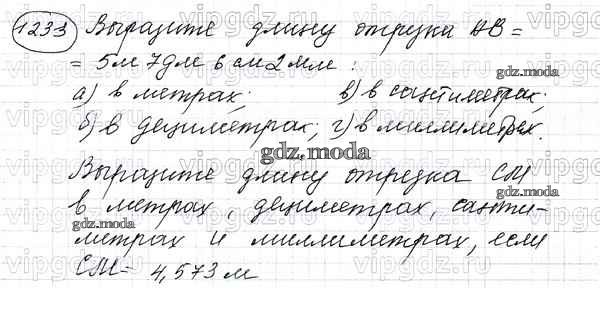 1233 Выразите длину отрезка AB =
= 5м 7дм 6 см 2 мм :
а) в метрах; в) в сантиметрах;
б) в дециметрах; г) в миллиметрах.
Выразите длину отрезка CM
в метрах, дециметрах, санти-
метрах и миллиметрах, если
CM = 4,573 м
gdz.moda
gdz.moda
gdz.moda
gdz.moda
gdz.moda
vipgdz.ru